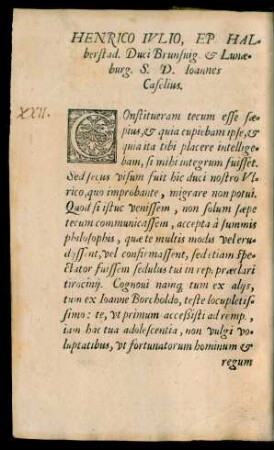 HENRICO IVLIO, EP HAL-
berstad. Duci Brunsuig. & Lunæ-
burg. S. D. Ioannes
Caselius.
XXII.
COnstitueram tecum esse sæ-
pius, & quia cupiebam ipse, &
quia ita tibi placere intellige-
bam, si mihi integrum fuisset.
Sed secus visum fuit hic duci nostro Vl-
rico, quo improbante, migrare non potui.
Quod si istuc venissem, non solum sæpe
tecum communicassem, accepta à summis
philosophis, quæ te multis modis vel eru-
dissent, vel confirmassent, sed etiam spe-
ctator fuissem sedulus tui in rep. præclari
tirocinij. Cognoui namq; tum ex alijs,
tum ex Ioanne Borcholdo, teste locupletis-
simo: te, vt primum accessisti ad remp.,
iam hac tua adolescentia, non vulgi vo-
luptatibus, vt fortunatorum hominum &
regum